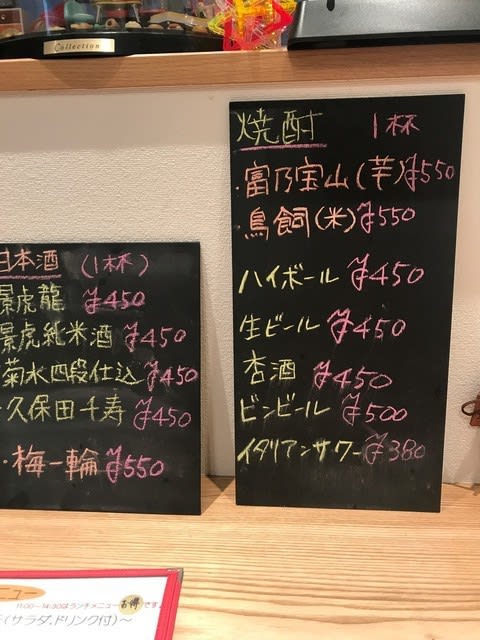 Collection
焼酎 1杯
・富乃宝山(芋)¥550
・鳥飼(米)¥550
ハイボール ¥450
生ビール ¥450
杏酒 ¥450
ビンビール ¥500
イタリアンサワー ¥380
日本酒 (1杯)
景虎龍 ¥450
景虎純米酒 ¥450
菊水四段仕込 ¥450
・久保田千寿 ¥450
・梅一輪 ¥550
ニュー
11:00〜14:30はランチメニューお得です
(サラダ、ドリンク付)〜